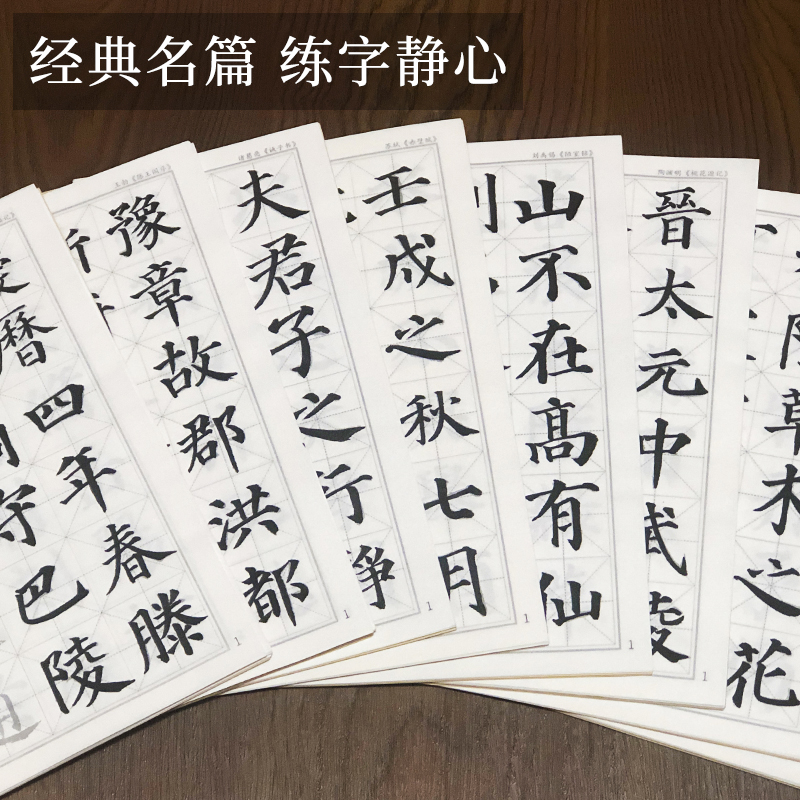 经典名篇 练字静心
曆四年春滕
守巴陵
1
王勃《滕王阁序》
豫章故郡洪都
1
诸葛亮《诫子书》
夫君子之行静
1
苏轼《赤壁赋》
壬戌之秋七月
1
刘禹锡《陋室铭》
山不在高有仙
1
陶渊明《桃花源记》
晉太元中武陵
1
陸草木之花